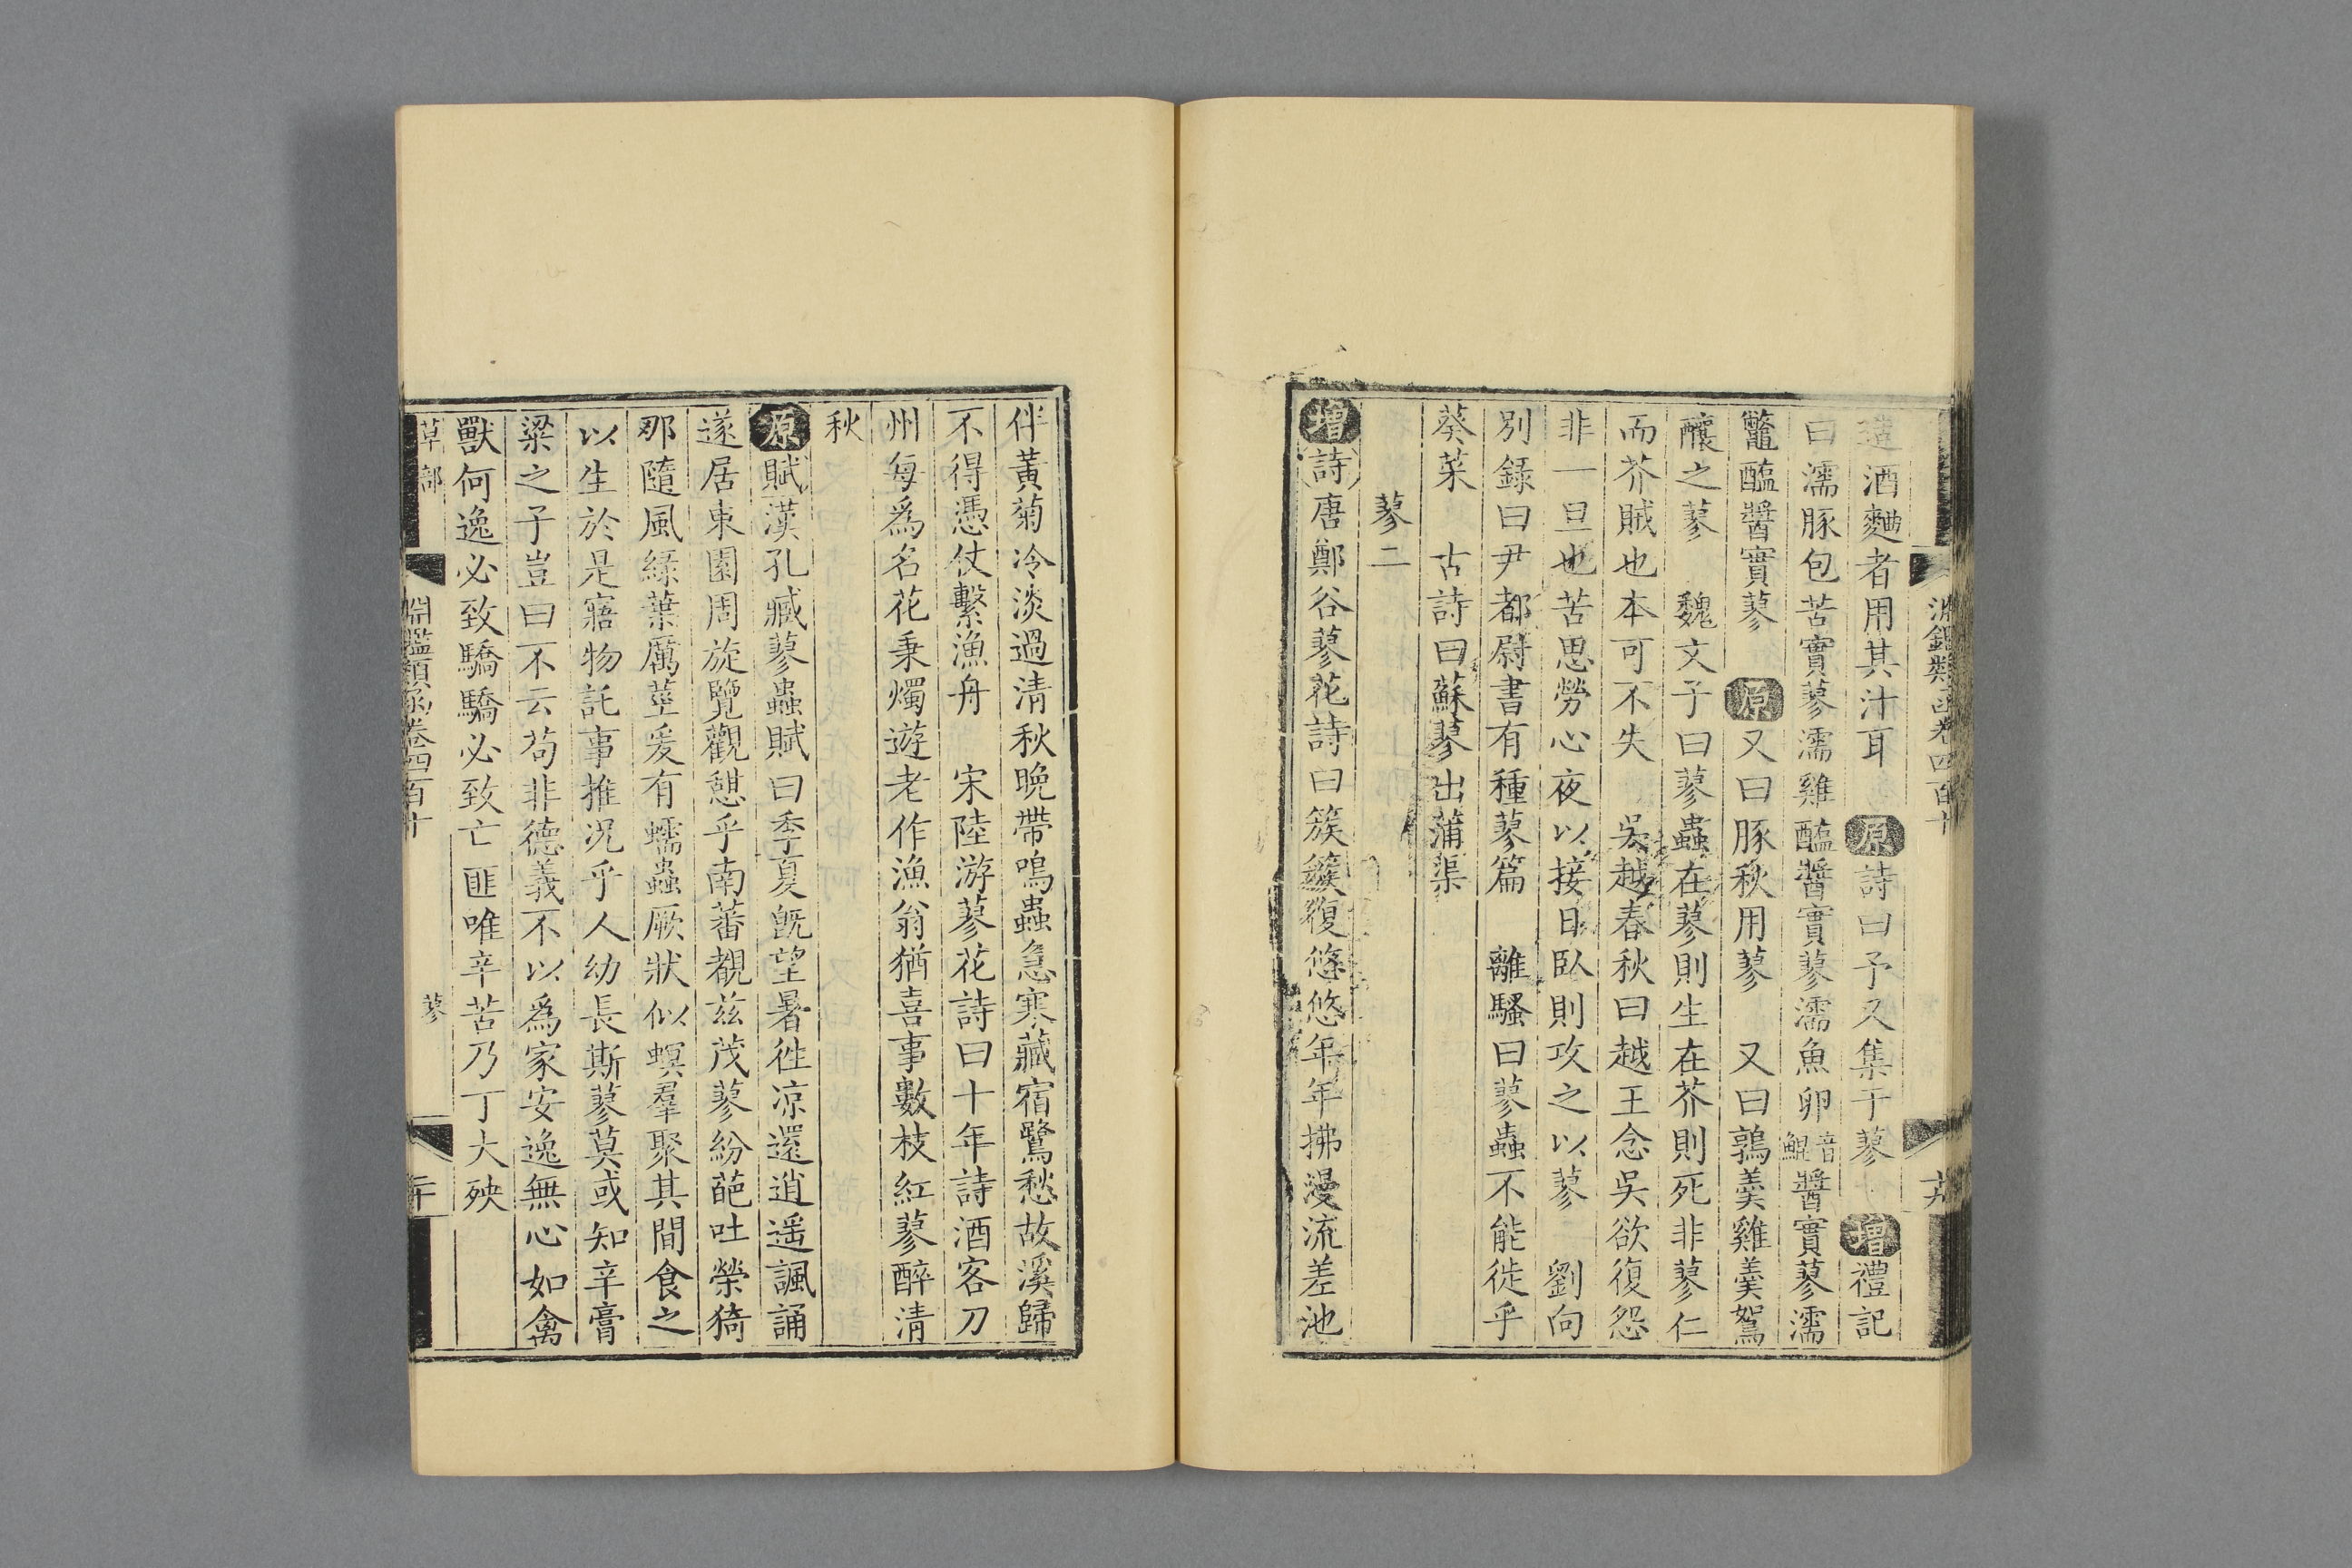 淵鑑類函卷四百十
造酒麯者用其汁耳 原 詩曰予又集于蓼 增 禮記
曰濡豚包苦實蓼濡雞醢醬實蓼濡魚卵音鯤醬實蓼濡
鼈醢醬實蓼 原 又曰豚秋用蓼 又曰鶉羹雞羹鴽
釀之蓼 魏文子曰蓼蟲在蓼則生在芥則死非蓼仁
而芥賊也本可不失 吳越春秋曰越王念吳欲復怨
非一旦也苦思勞心夜以接日臥則攻之以蓼 劉向
別錄曰尹都尉書有種蓼篇 離騷曰蓼蟲不能徙乎
葵菜 古詩曰蘇蓼出蒲渠
蓼二
增 詩唐鄭谷蓼花詩曰簇簇復悠悠年年拂漫流差池
伴黃菊冷淡過清秋晚帶鳴蟲急寒藏宿鷺愁故溪歸
不得憑仗繫漁舟 宋陸游蓼花詩曰十年詩酒客刀
州每爲名花秉燭遊老作漁翁猶喜事數枝紅蓼醉清
秋
原 賦漢孔臧蓼蟲賦曰季夏旣望暑徃凉還逍遥諷誦
遂居東園周旋覽觀憇乎南蕃覩茲茂蓼紛葩吐榮猗
那隨風緑葉厲莖爰有蠕蟲厥狀似螟羣聚其間食之
以生於是寤物託事推况乎人幼長斯蓼莫或知辛膏
粱之子豈曰不云苟非德義不以爲家安逸無心如禽
獸何逸必致驕驕必致亡匪唯辛苦乃丁大殃
草部 淵鑑類函卷四百十 蓼 二十